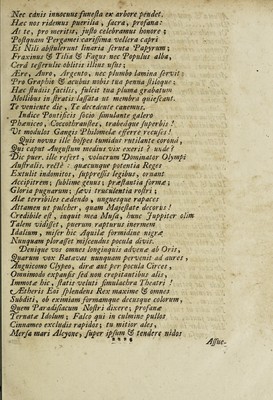 Nec canis innocuus funesta ex arbore pendet.
Hæc nos ridemus puerilia, sacra, profana:
At te, pro meritis, justo celebramus honore;
Postquam Pergamei carissima vellera capri
Et Nili abstulerunt linaria scruta Papyrum;
Fraxinus & Tilia & Fagus nec Populus alba,
Cerâ tesserulæ oblitis illius usui;
Ære, Auro, Argento, nec plumbo lamina servit;
Pro Graphio & acubus nobis tua penna stiloque:
Hac studiis facilis, fulcit tua pluma grabatum
Mollibus in stratis lassata ut membra quiescant.
Te veniente die, Te decedente canemus.
Indice Pontificis socio simulante galero
Phœnicei, Coccothraustes, trabedque superbis!
Ut modulos Gangis Philomelæ efferre recuses!
Quis novus ille hospes tumidus rutilante coronâ,
Qui caput Angustum medius vix exerit? unde?
Dic puer. ille refert, volucrum Dominator Olympi
Australis. rectè: quæcunque potentia Reges
Extulit indomitos, suppressis legibus, ornant
Accipitrem; sublime genus; præstantia formæ;
Gloria pugnarum; sævi truculentia rostri;
Alæ terribiles cædendo, unguesque rapaces
Attamen ut pulcher, quam Majestate decorus!
Credibile est, inquit mea Musa, hunc Juppiter olim
Talem vidisset, puerum rapturus inermem
Idalium, miser hic Aquilæ formidine nigræ
Nunquam plorasset miscendus pocula divûm.
Denique vos omnes longinquis advenæ ab Oris,
Quarum vox Batavas nunquam pervenit ad aures,
Anguicomo Clypeo, diræ aut per pocula Circes,
Omnimodo expansis sed non crepitantibus alis,
Immotæ hic, statis veluti simulachra Theatri!
Ætheris Eoi splendens Rex maxime & omnes
Subditi, ob eximiam formamque decusque colorum,
Quem Paradisiacum Nostri dixere; profanæ
Ternatæ Idolum; Falco qui in culmine pullos
Cinnameo excludis rapidos; tu mitior ales,
Mersa mari Alcyone, super ipsum & tendere nidos
Assue-